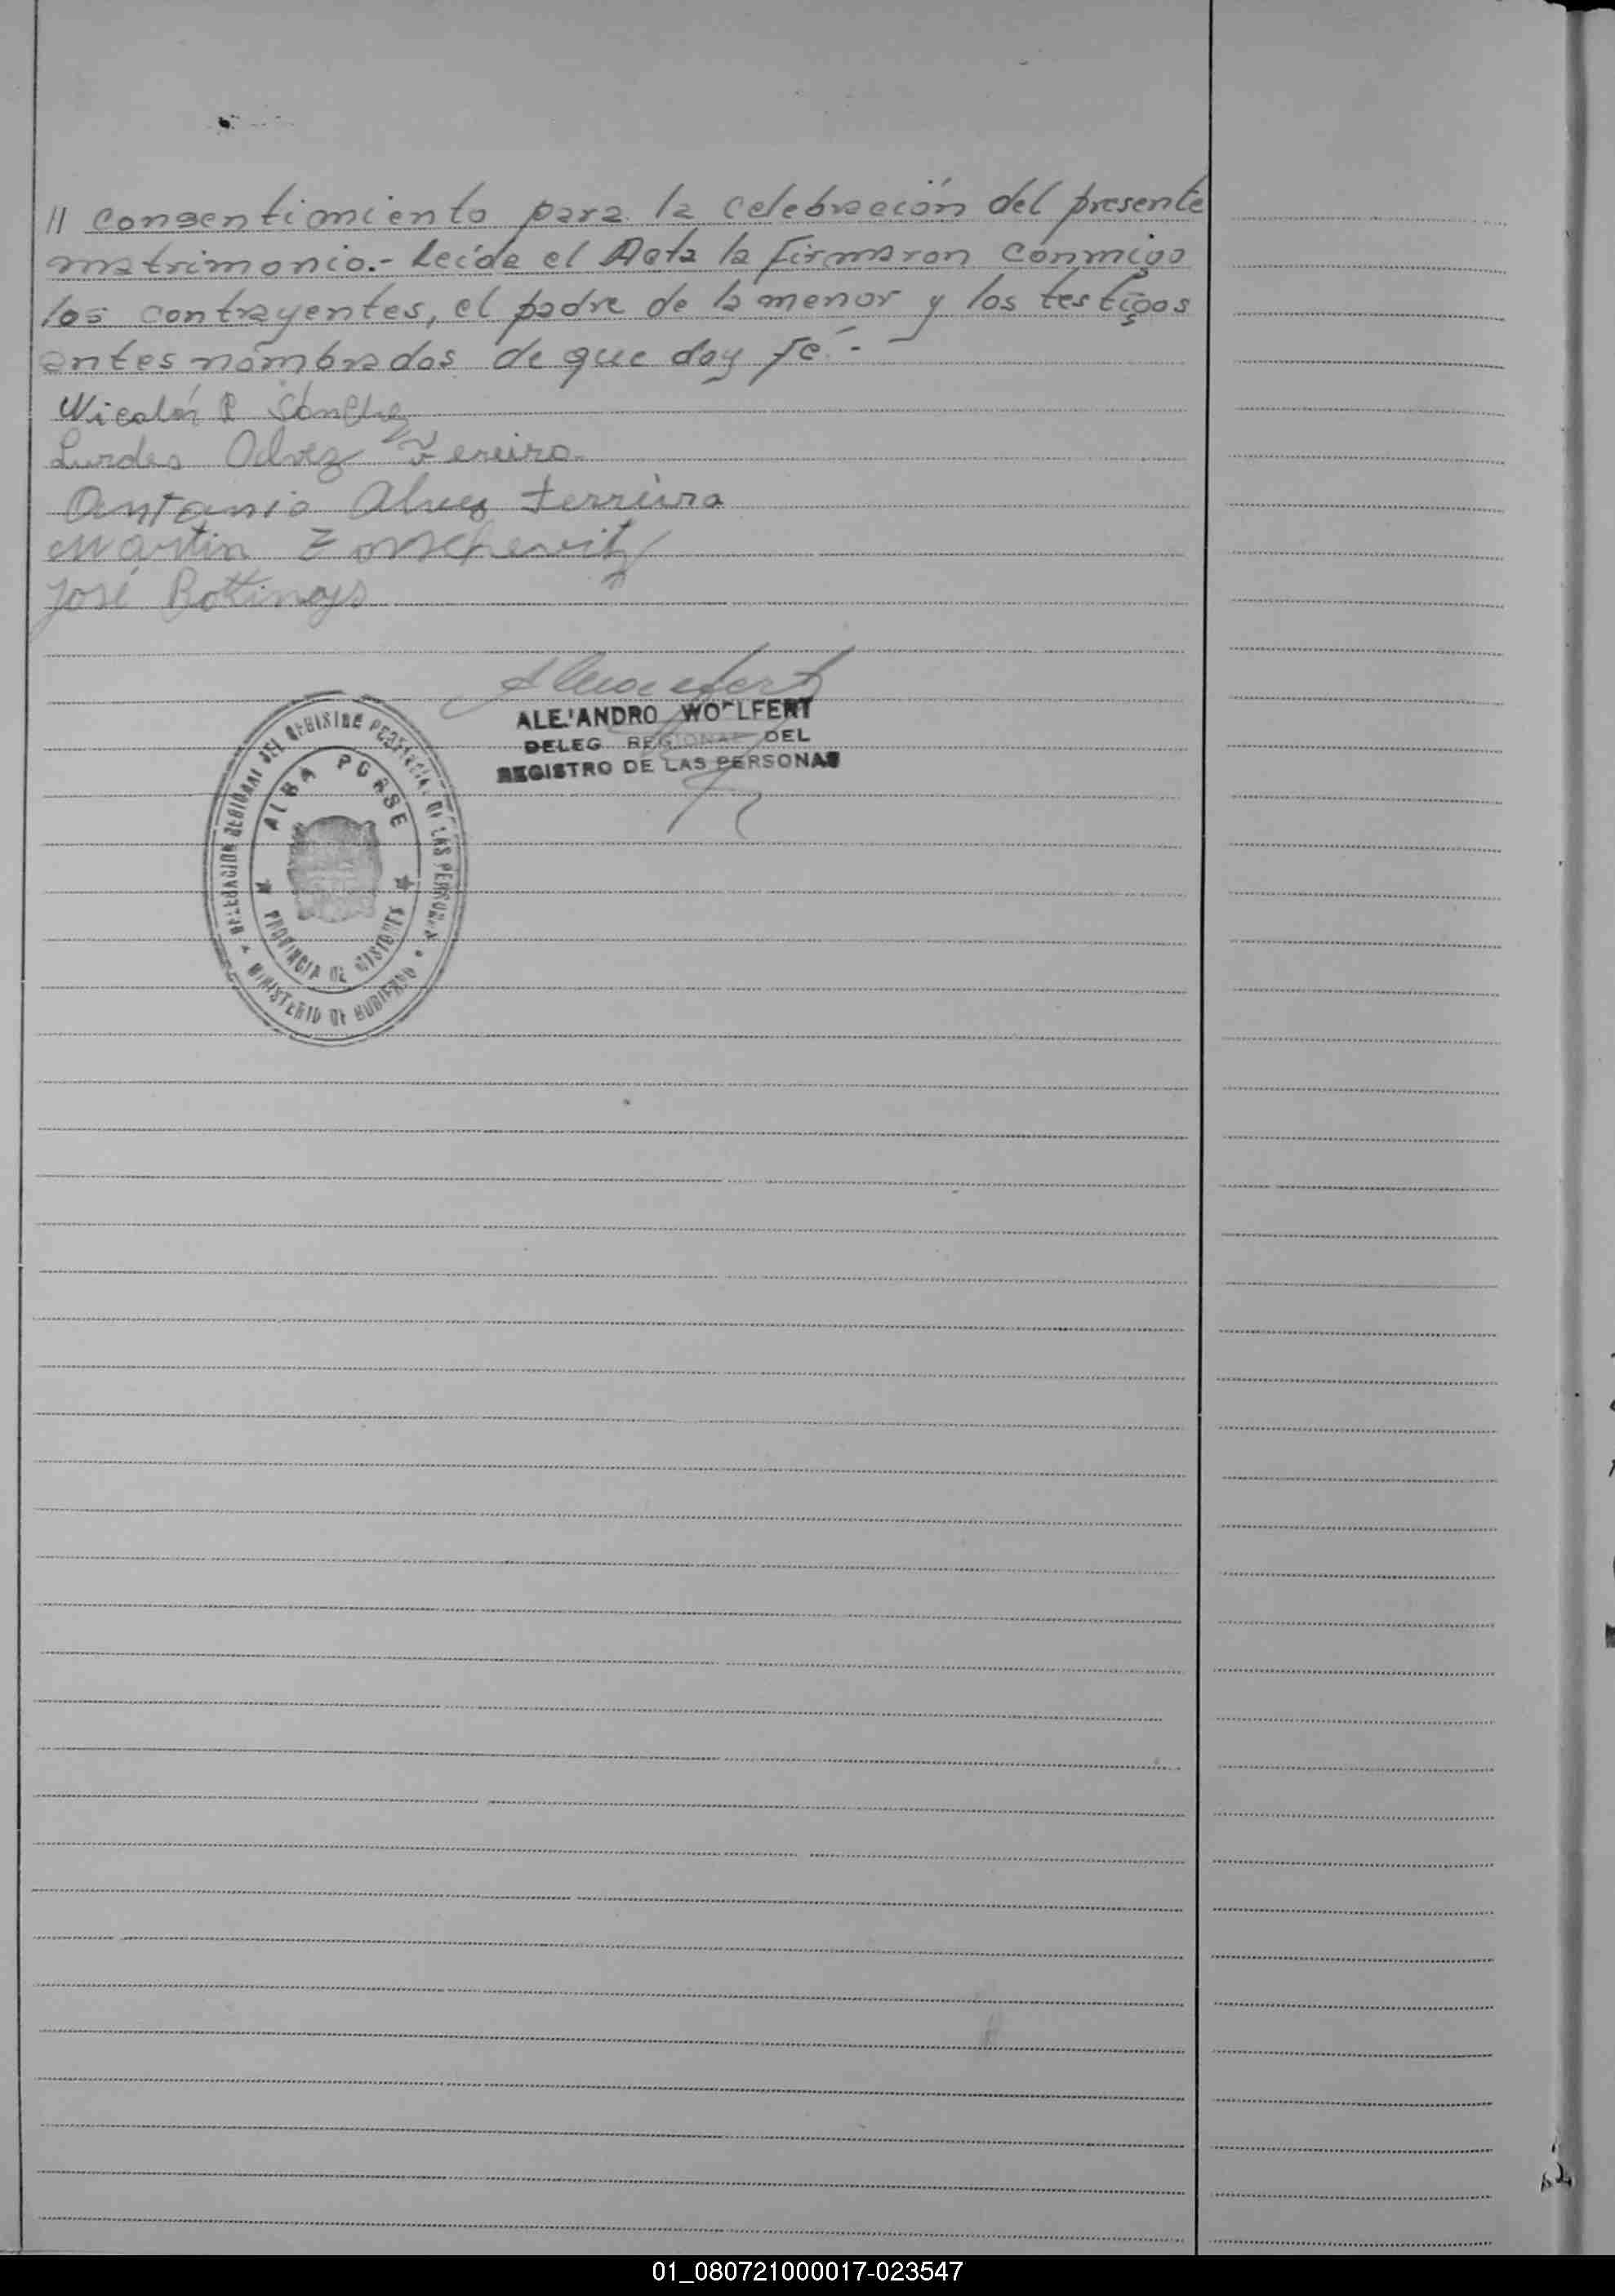 // consentimiento para la celebración del presente
matrimonio.- Leída el Acta la firmaron conmigo
los contrayentes, el padre de la menor y los testigos
antes nombrados de que doy fé.-
Nicolás R Sánchez
Lurdes Alvez Fereira
Antonio Alves Ferreira
Martin
José
ALEJANDRO WOLFERT
DELEG REGIONAL DEL
REGISTRO DE LAS PERSONAS
DELEGACION REGIONAL DEL REGISTRO PROVINCIAL DE LAS PERSONAS
ALBA POSSE
PROVINCIA DE MISIONES
MINISTERIO DE GOBIERNO
01_080721000017-023547